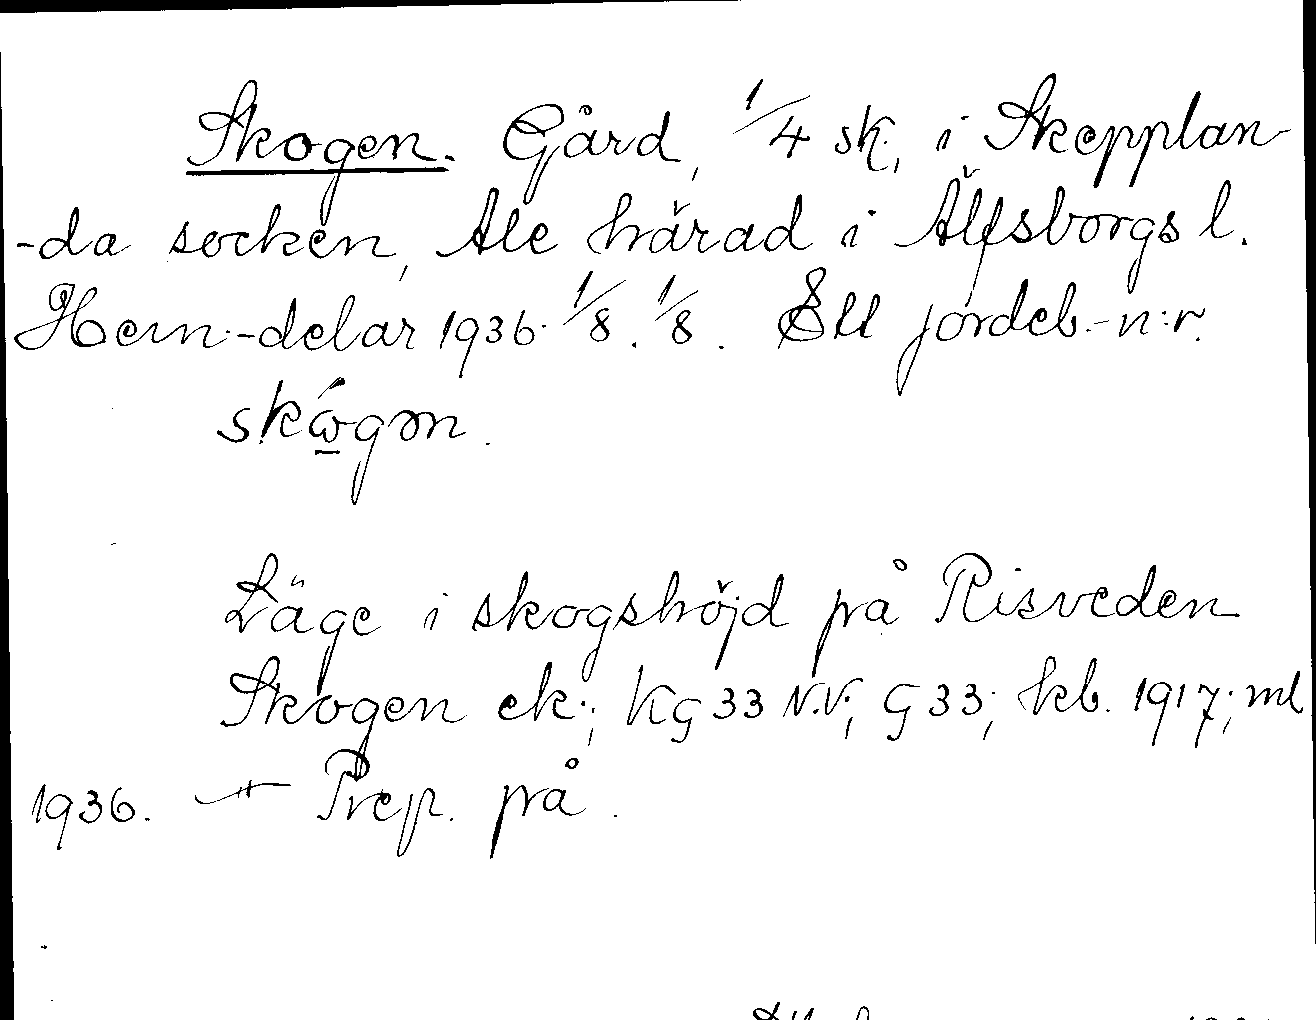 Skogen. Gård, 1/4 sk., i Skepplan-
-da socken, Ale härad i Älfsborgs l.
Hem.-delar 1936. 1/8. 1/8. Ett jordeb.-n:r.
skώ̲gən.
Läge i skogshöjd på Risveden
Skogen ek.; KG 33 N.V.; G 33; kb. 1917; ml
1936. — Prep. på.